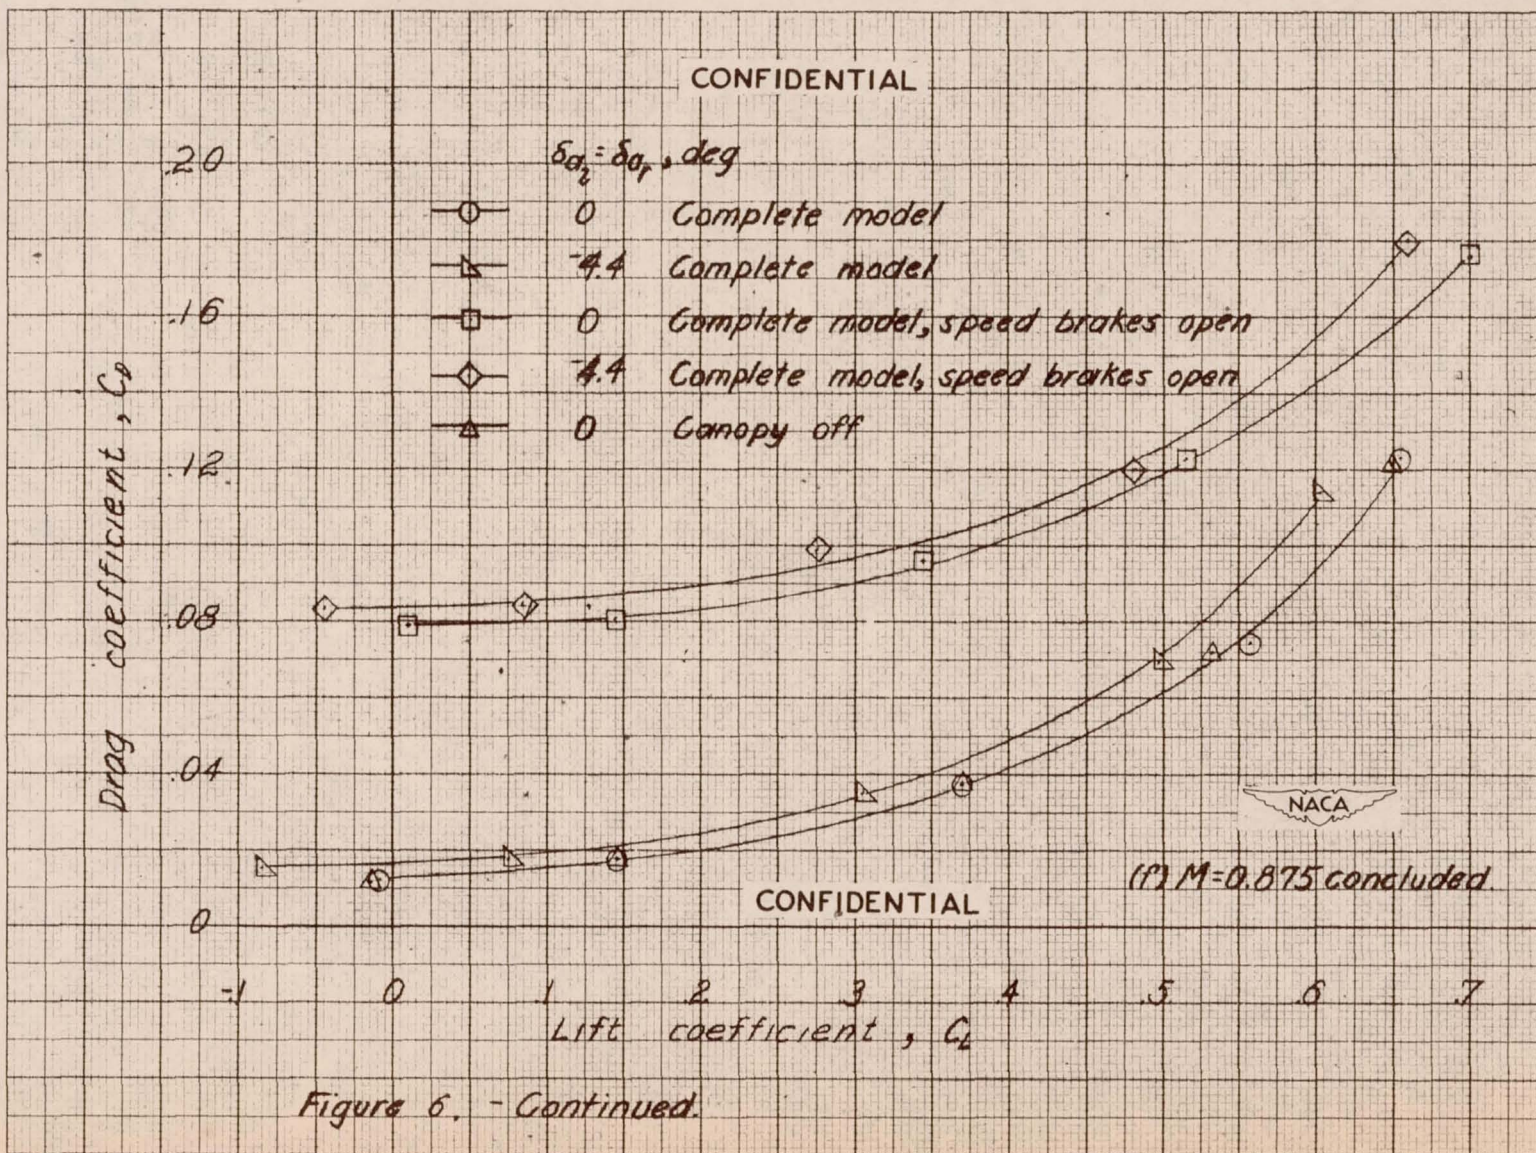 CONFIDENTIAL
δaₗ = δaᵣ, deg
0 Complete model
-4.4 Complete model
0 Complete model, speed brakes open
-4.4 Complete model, speed brakes open
0 Canopy off
.20
.16
.12
.08
.04
0
Drag coefficient, C_D
NACA
(f) M=0.875 concluded.
CONFIDENTIAL
-.1 0 .1 .2 .3 .4 .5 .6 .7
Lift coefficient, C_L
Figure 6. - Continued.